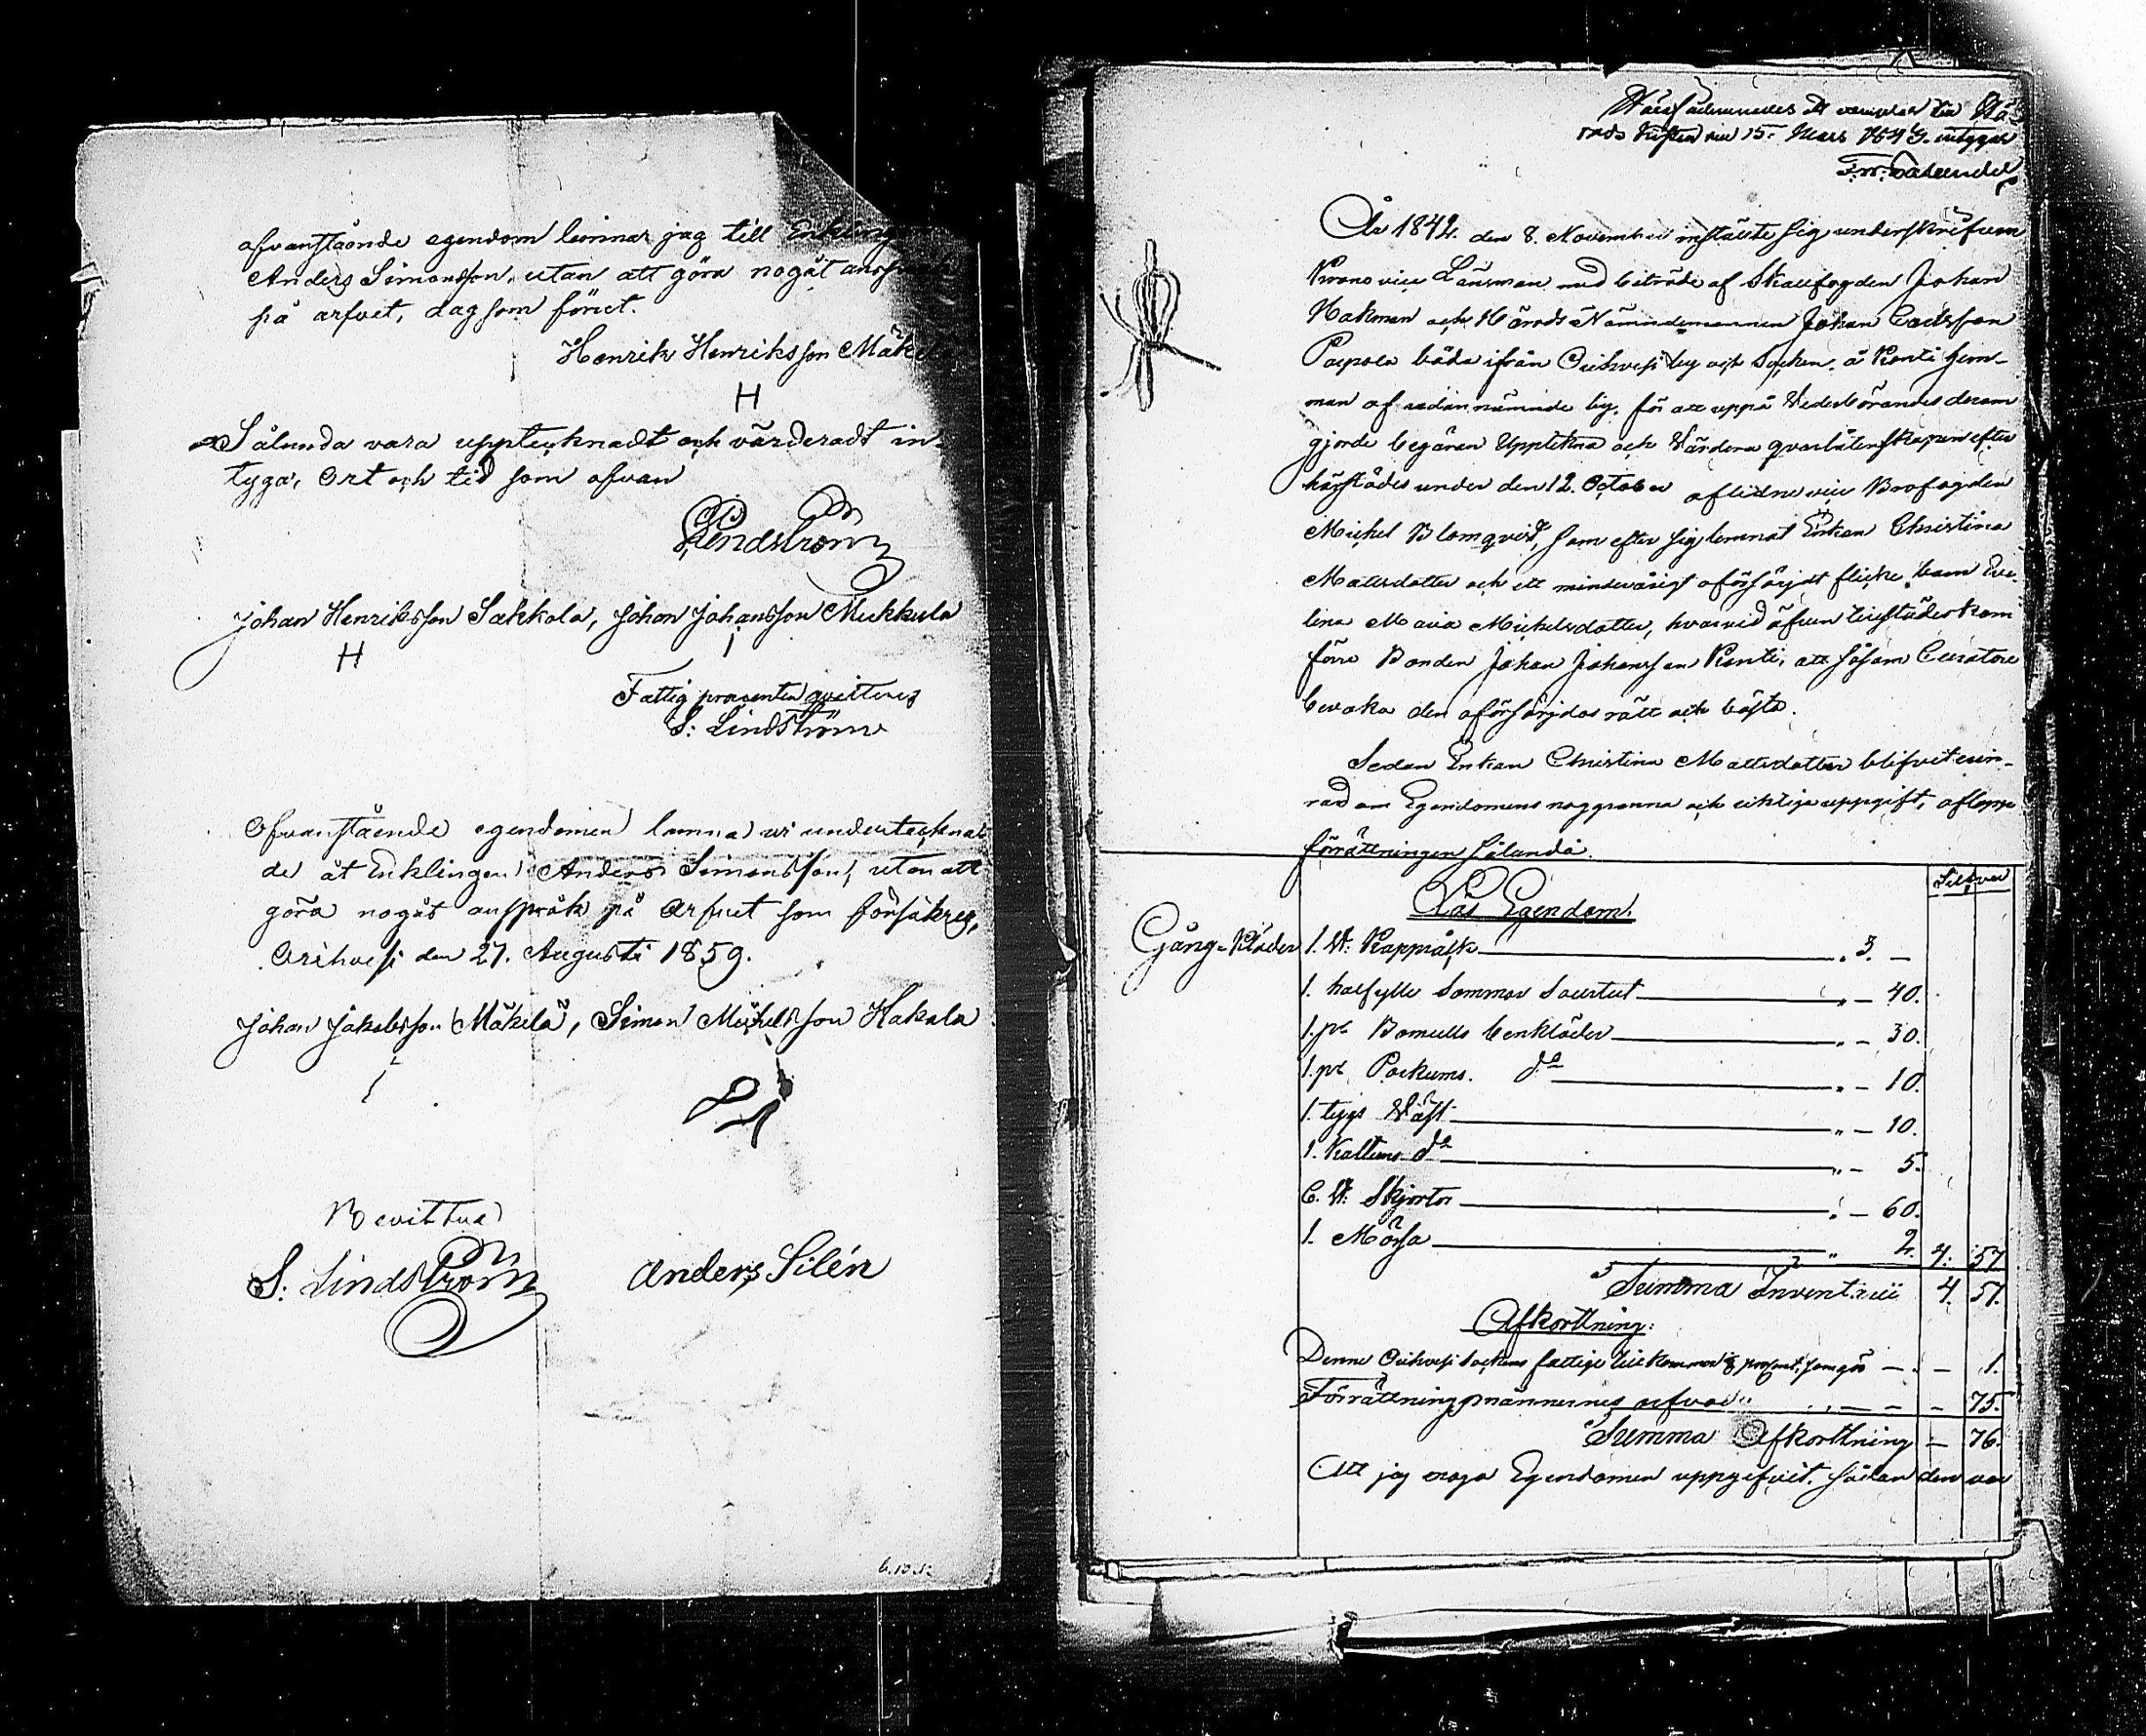 ofvanstående egendom lemnar jag till Enkling
Anders Simonsson, utan att göra nogåt
på arfvet, dag som förut.
Henrik Henriksson Mäkelä
H
Sålunda vara upptecknadt och värderadt in-
tyga, Ort och tid som ofvan
S. Lindström
Johan Henriksson Sakkola, Johan Johansson Mukkula
H
Fattig procenten qvitteras
S: Lindström
Ofvanstående egendomen lemna vi underteckna
de åt Enklingen Anders Simonsson, utan att
göra nogåt anspråk på arfvet som försäkras,
Orihvesi den 27. Augusti 1859.
Johan Jakobsson Mäkelä, Simon Michelsson Hakala
Bevittna
S: Lindström Anders Silén
6.10.
den 15. Mars 1843. intygar
År 1842. den 8. November instälte sig underskrifven
Krono vice Länsman med biträde af Skallfogden Johan
Hakman och Härads Nämndemannen Johan Carlsson
Paopola båda ifrån Orihvesi by och Socken, å Ronti hem-
man af sednnämnde by, för att uppå Vederbörandes derom
gjorde begäran Upptekna och Värdera qvarlåtenskapen efter
härstädes under den 12. October aflidne vice Brofogden
Michel Blomqvist, som efter sig lemnat Enkan Christina
Mattsdotter och ett minderårigt oförsörjdt flicke barn Eve-
lina Maria Michelsdotter, hvarvid äfven tillstädeskom
förre Bonden Johan Johansson Ronti, att såsom Curator
bevaka den oförsörjdas rätt och bästa.
Sedan Enkan Christina Mattsdotter blifvit erin-
rad om Egendomens noggranna och riktiga uppgift, aflopp
förrättningen sålunda.
Silfver
Lös Egendom.
Gång-Kläder 1. St: Kappråck " 3. —
1. halfylle Sommar Surtut " — 40.
1. pr Bomulls benkläder " — 30.
1. pr Parkums. do " — 10.
1. tygs Väst " — 10.
1. Kattuns do " — 5.
6. St: Skjortor " — 60.
1. Mössa " 2. 4. 57.
Summa Inventarii 4. 57.
Afkorttning:
Denne Orihvesi Sockens fattige tillkommer procent, som gör — — 1.
Förrättningsmännernes arfvode — — 75.
Summa Afkorttning — 76.
Att jag noga Egendomen uppgifvit, sådan den var